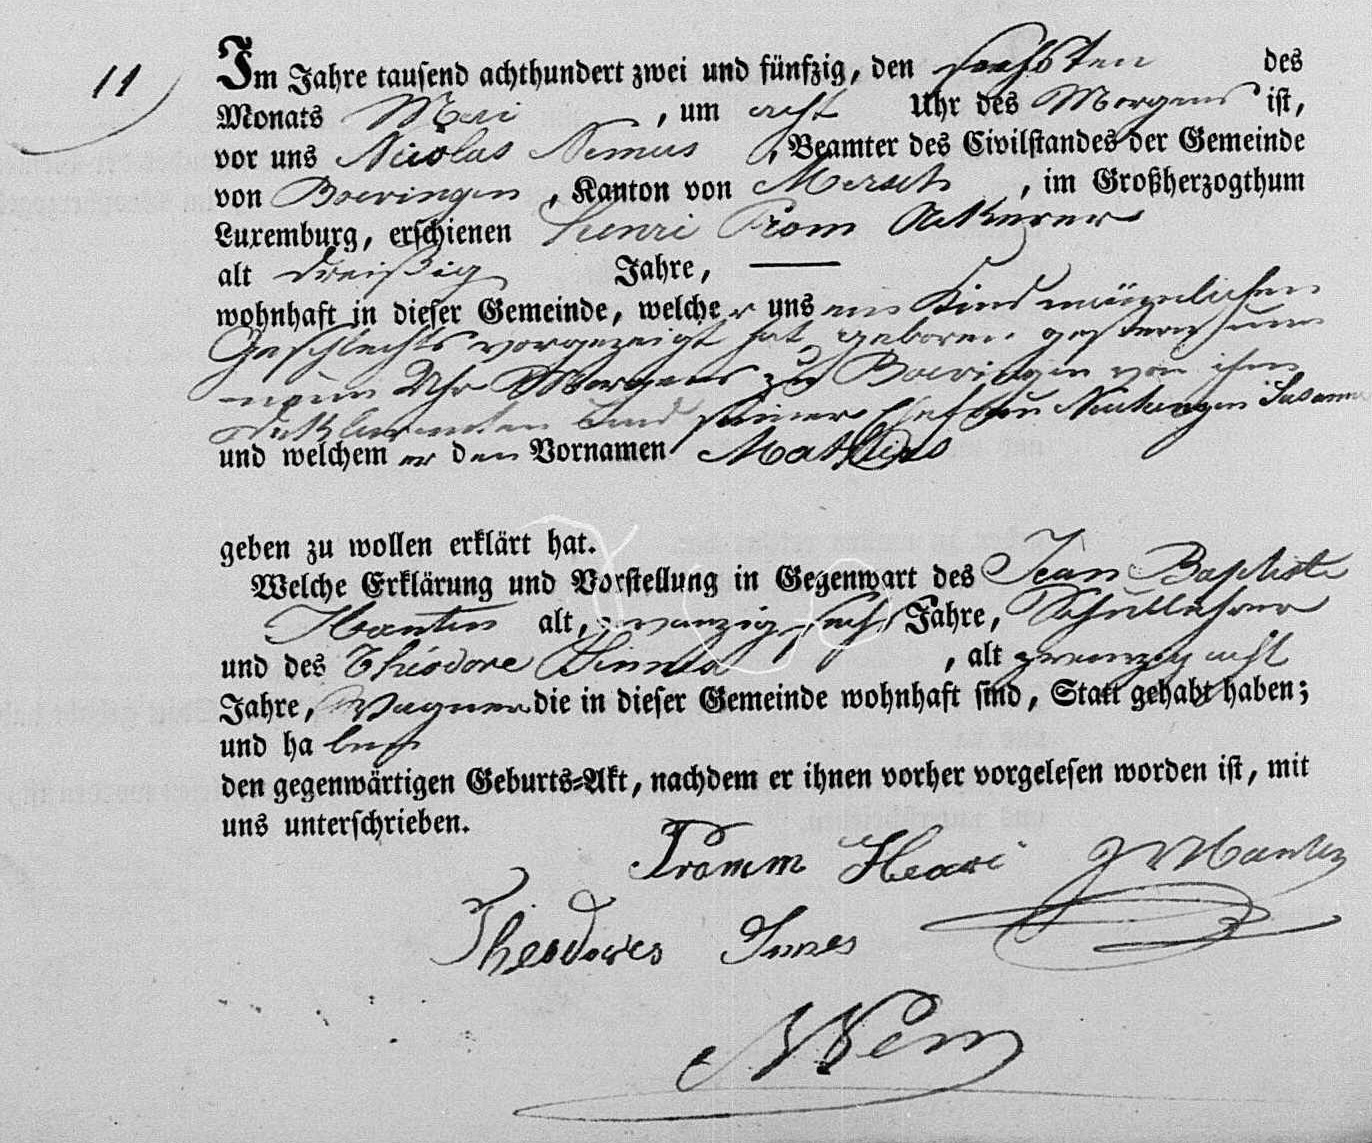 11
Im Jahre tausend achthundert zwei und fünfzig, den sechsten des
Monats Mai , um acht Uhr des Morgens ist,
vor uns Nicolas Nemers , Beamter des Civilstandes der Gemeinde
von Boevingen , Kanton von Mersch , im Großherzogthum
Luxemburg, erschienen Henri From Ackerer
alt dreißig Jahre, —
wohnhaft in dieser Gemeinde, welcher uns ein Kind männlichen
Geschlechts vorgezeigt hat geboren gestern um
neun Uhr Morgens zu Boevingen von ihm
Deklaranten und seiner Ehefrau Susanna
und welchem er den Vornamen Mathias
geben zu wollen erklärt hat.
Welche Erklärung und Vorstellung in Gegenwart des Jean Baptiste
alt, zwanzig sechs Jahre, Schullehrer
und des Théodore , alt zwanzig acht
Jahre, Wagner die in dieser Gemeinde wohnhaft sind, Statt gehabt haben;
und haben
den gegenwärtigen Geburts-Akt, nachdem er ihnen vorher vorgelesen worden ist, mit
uns unterschrieben.
Fromm Henri
Theodores